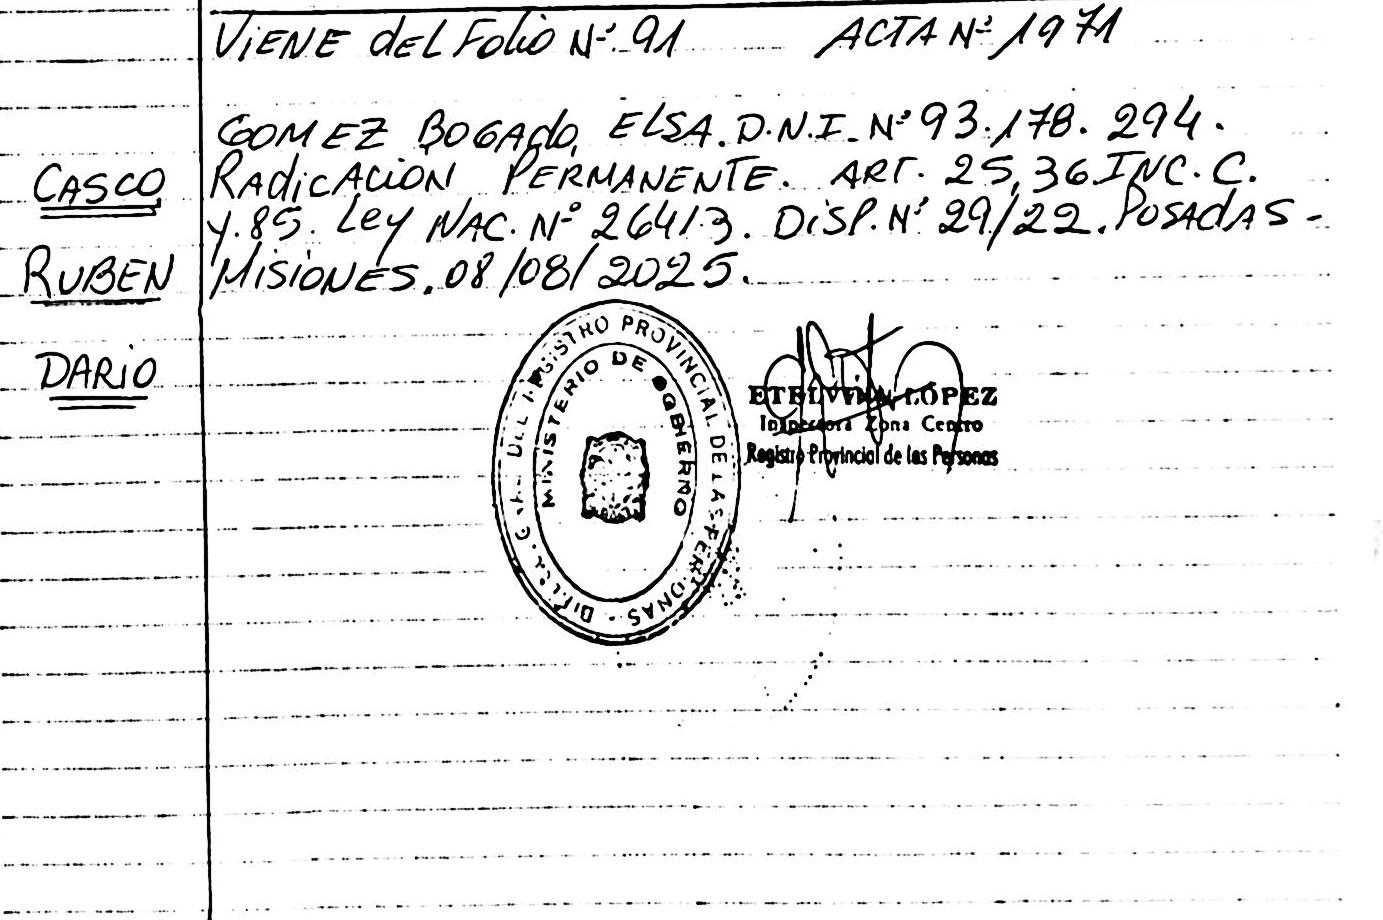 VIENE del Folio Nº 91 ACTA Nº 1971
GOMEZ BOGADO, ELSA. D.N.I. Nº 93.178.294.
RADICACION PERMANENTE. ART. 25, 36 INC. C.
Y. 85. Ley NAC. Nº 26413. DISP. Nº 29/22. POSADAS -
MISIONES. 08/08/2025.
CASCO,
RUBEN
DARIO
REGISTRO PROVINCIAL DE LAS PERSONAS
MINISTERIO DE GOBIERNO
ETELVINA LÓPEZ
Inspectora Zona Centro
Registro Provincial de las Personas